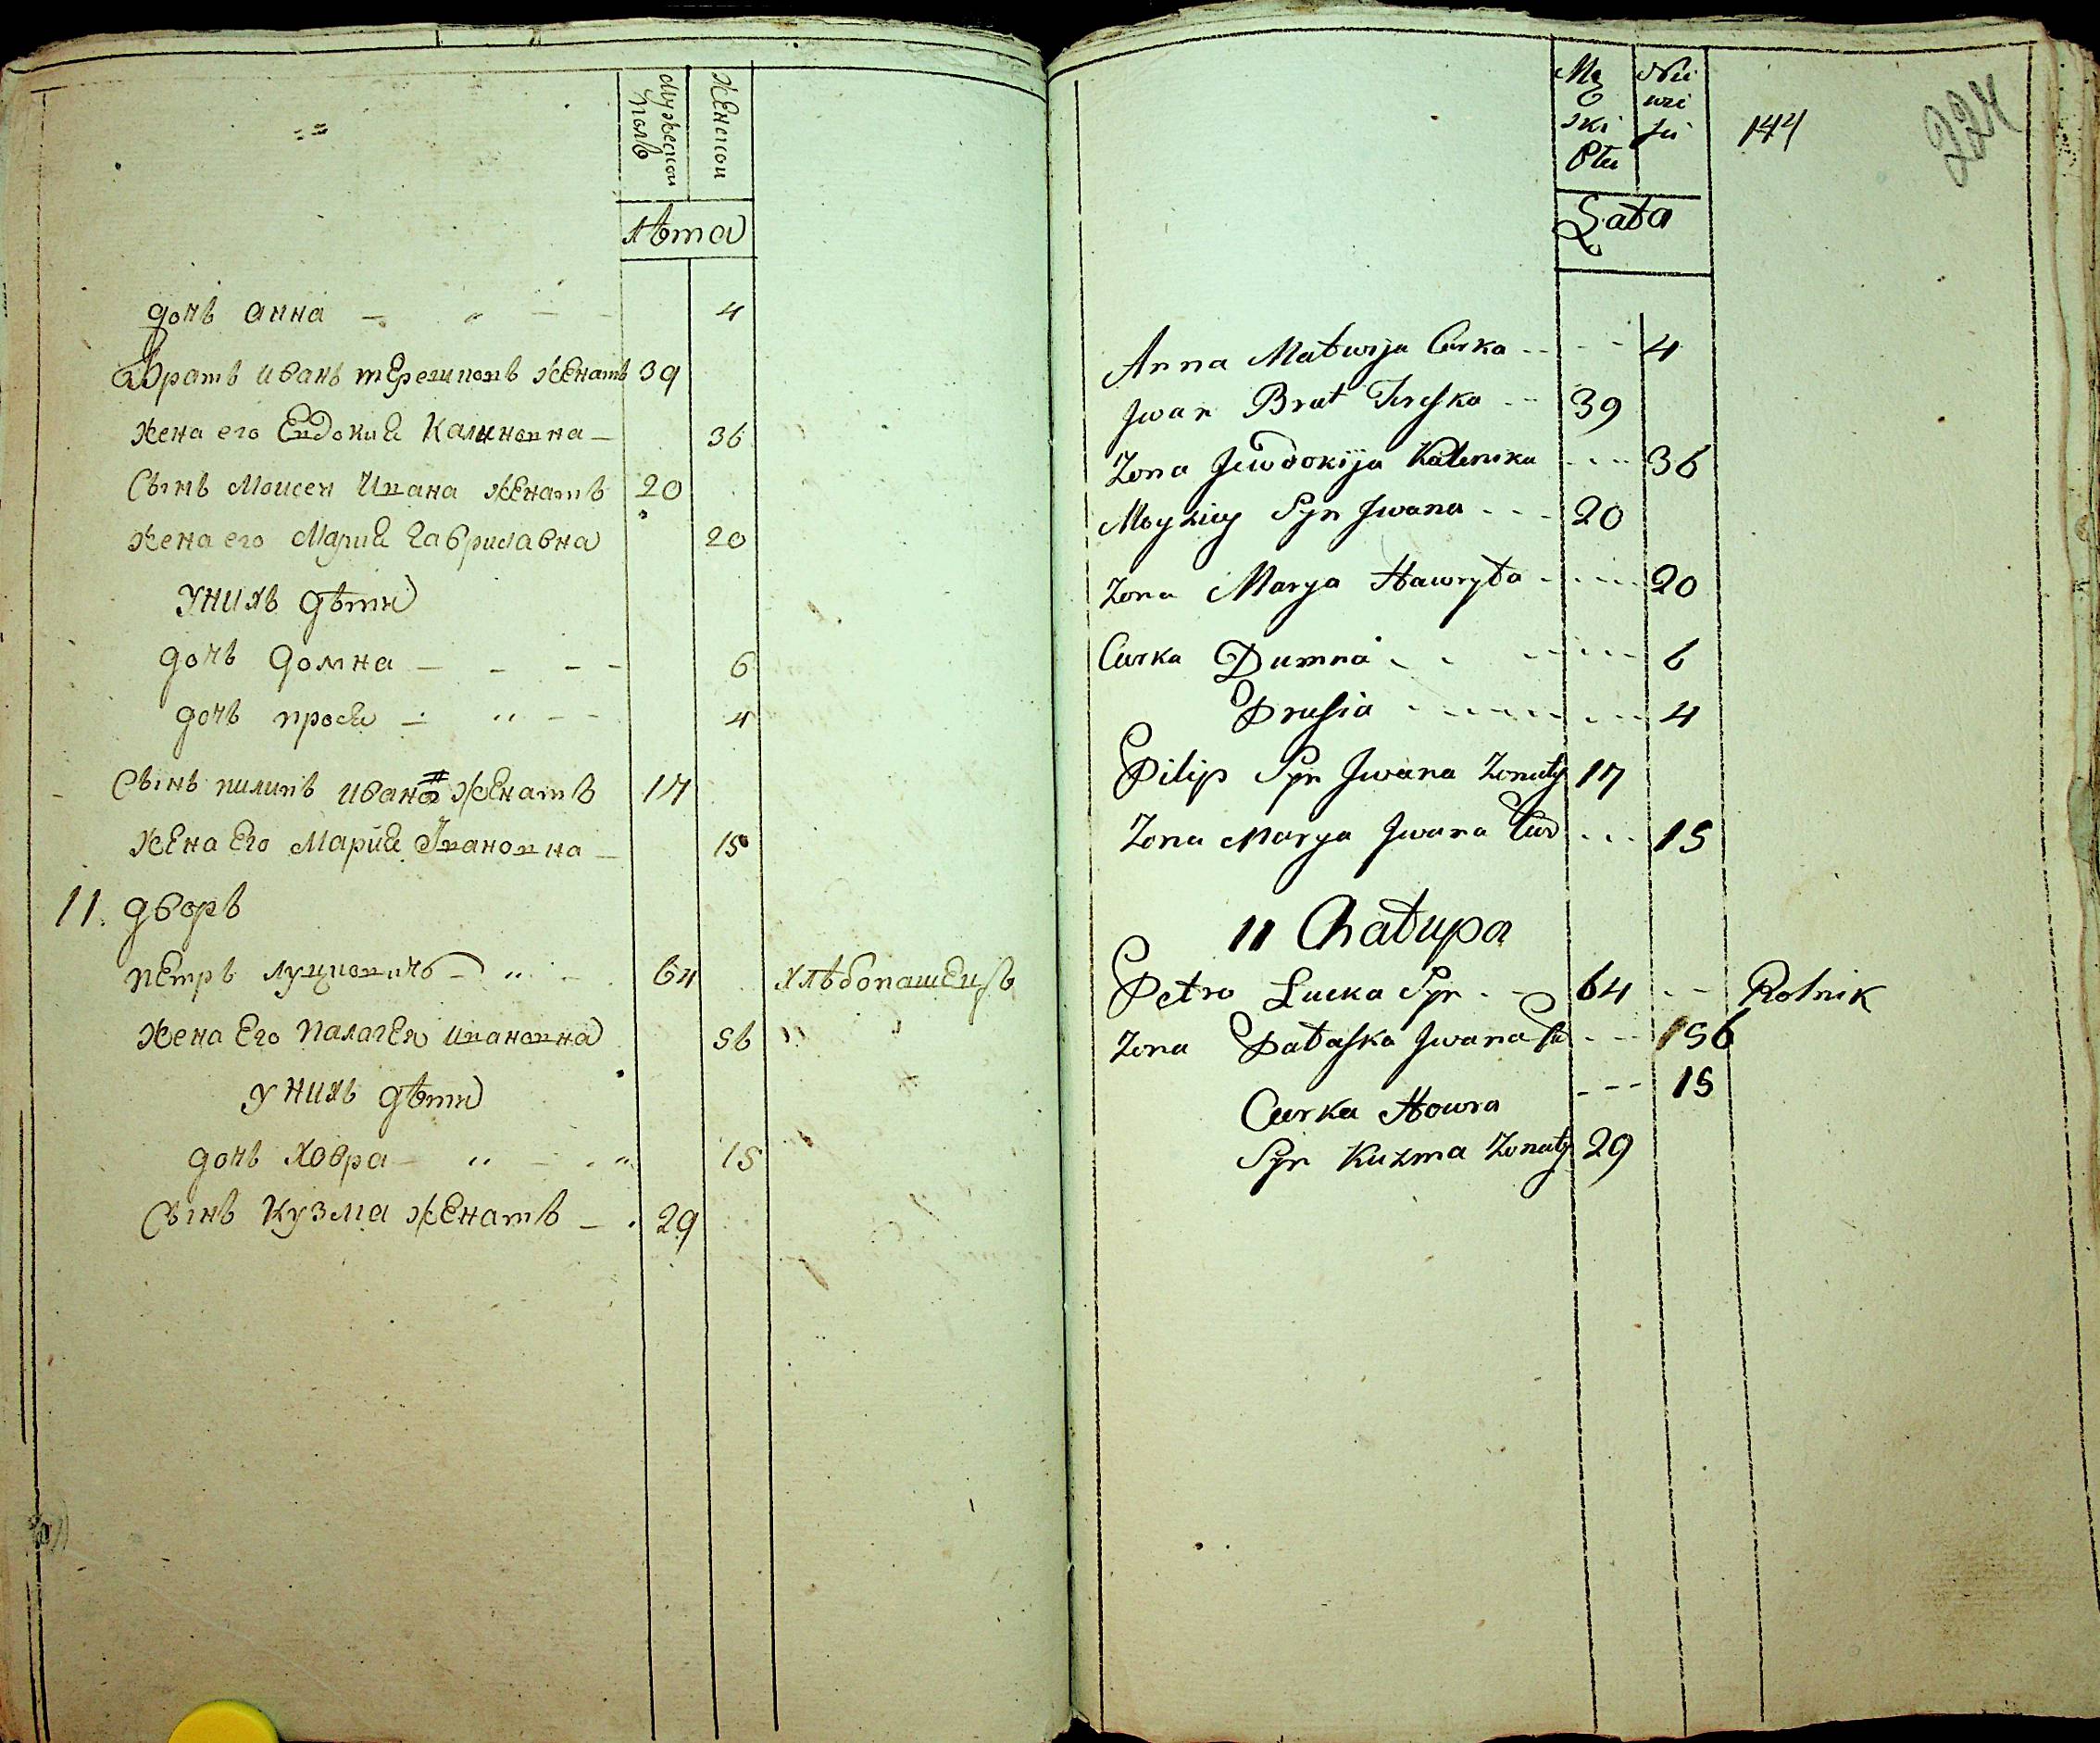 мужескои полъ
женскои
лѣта
дочь анна 4
Братъ иванъ терешковъ женатъ 39
жена его Евдокия Калиновна 36
Сынъ Моисеи Ивана женатъ 20
жена его Мария гавриловна 20
У нихъ дѣти
дочь домна 6
дочь прося 4
Сынъ пилипъ ивана женатъ 17
жена Его Мария Ивановна 15
11. дворъ
петръ луциовичъ 64 хлѣбопашецъ
жена Его Палагея ивановна 56
У нихъ дѣти
дочь ховра 15
Сынъ Кузма женатъ 29
Mę ski Płci
Niewie ści
144
224
Lata
Anna Matwija Curka 4
Jwan Brat Tereszka 39
Zona Jewdokija Kalenika 36
Moyziey Syn Jwana 20
Zona Marya Hawryła 20
Curka Dumna 6
Prusia 4
Pilip Syn Jwana Zonaty 17
Zona Marya Jwana Cur 15
11 Chałupa
Petro Lucka Syn 64 Rolnik
Zona Pałaszka Jwana 56
Curka Howra 15
Syn Kuzma Zonaty 29